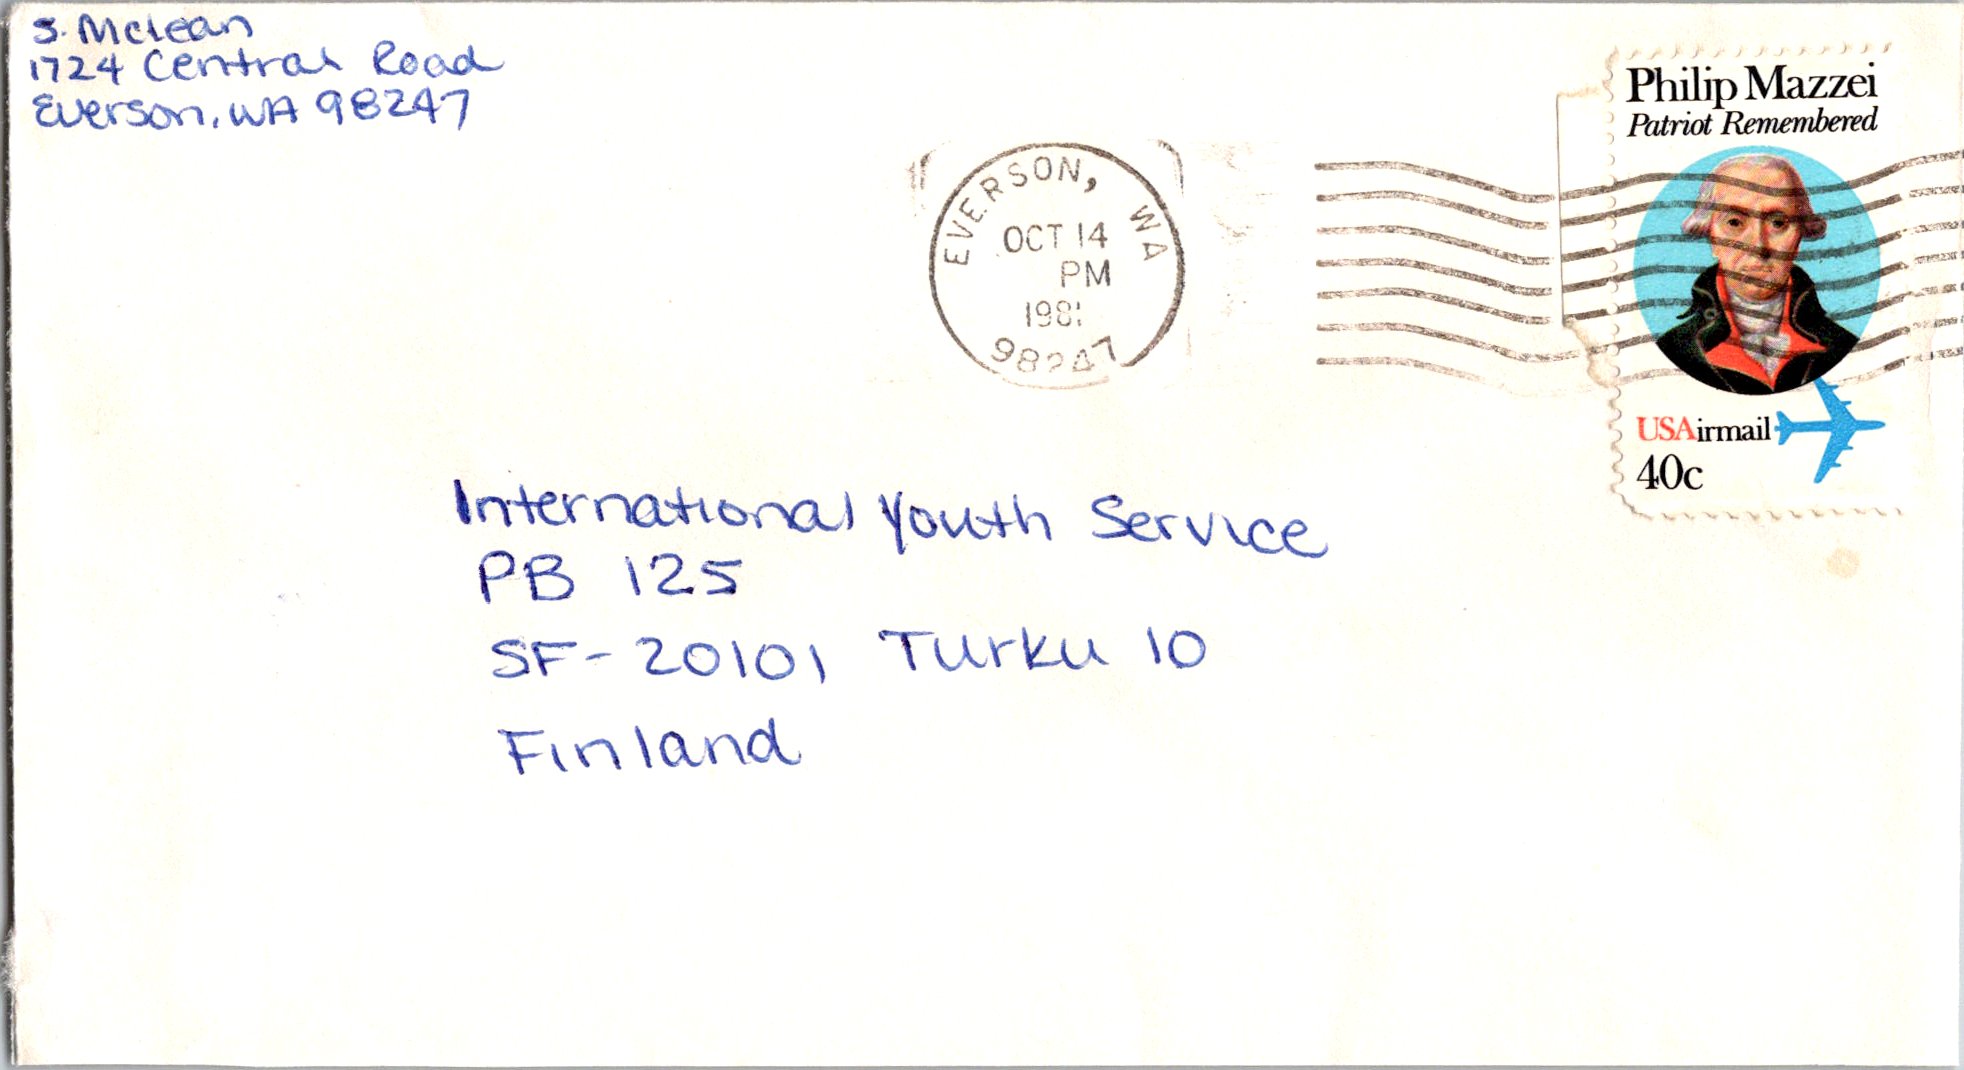 S. McLean
1724 Central Road
Everson, WA 98247
Philip Mazzei
Patriot Remembered
EVERSON, WA
OCT 14
PM
98247
USAirmail
40c
International Youth Service
PB 125
SF-20101 Turku 10
Finland